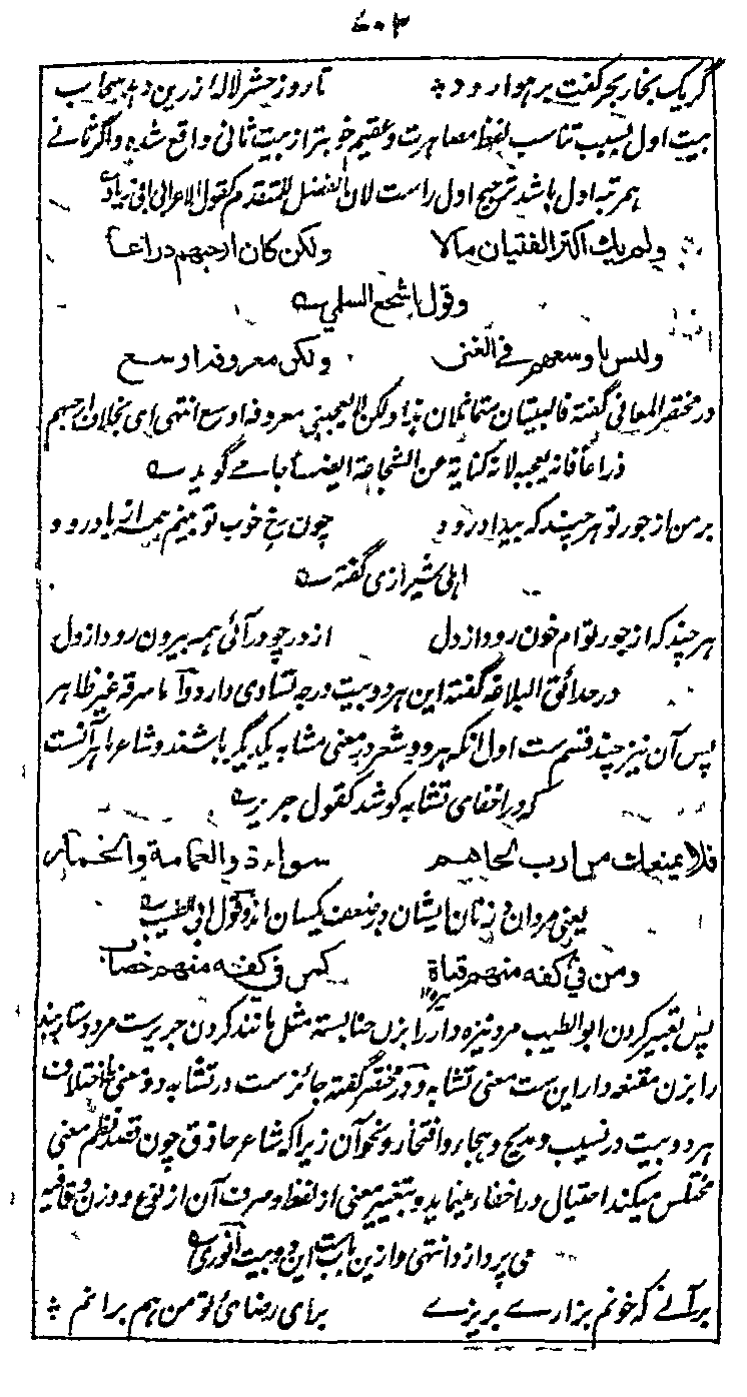 ۷۰۳
گر یک بخار بحر کفت بر هوا رود تا روز حشر لاله زرین دهد سحاب
بیت اول بسبب تناسب لفظ مصاهرت و عقیم خوبتر از بیت ثانی واقع شده و اگر ثانی
هم رتبه اول باشد ترجیح اول راست لان الفضل للمتقدم کقول الاعرابی ابی زیاد
ولم یك اکثر الفتیان مالا ولکن کان ارحبهم ذراعا
وقول اشجع السلمی
ولیس باوسعهم فی الغنی ولکن معروفه اوسع
در مختصر المعانی گفته فالبیتان متماثلان هذا ولکن لا یعجبنی معروفه اوسع انتهی ای بخلاف ارحبهم
ذراعا فانه یعجبه لانه کنایة عن الشجاعة ایضا جامی گوید
بر من از جور تو هر چند که بیداد رود چون رخ خوب تو بینم همه از یاد رود
اهلی شیرازی گفته
هر چند که از جور توام خون رود از دل از در چو در آئی همه بیرون رود از دل
در حدائق البلاغه گفته این هر دو بیت درجه تساوی دارد و اما سرقه غیر ظاهر
پس آن نیز چند قسم ست اول آنکه هر دو شعر در معنی مشابه یکدیگر باشند و شاعر ماهر آنست
که در اخفای تشابه کوشد کقول جریر
فلا یمنعك من ارب لحاهم سواء ذو العمامة والخمار
یعنی مردان و زنان ایشان در ضعف یکسان اند و قول ابی الطیب
ومن فی کفه منهم قناة کمن فی کفه منهم خضاب
پس تعبیر کردن ابو الطیب مرد نیزه دار را بزن حنا بسته مثل مانند کردن جریرست مرد دستار بند
را بزن مقنعه دار این ست معنی تشابه و در مختصر گفته جائز ست در تشابه دو معنی اختلاف
هر دو بیت در نسیب و مدیح و هجاء و افتخار و نحو آن زیرا که شاعر حاذق چون قصد نظم معنی
مختلس میکند احتیال در اخفاء مینماید و بتغییر معنی از لفظ و صرف آن از نوع و وزن و قافیه
می پردازد انتهی و ازین باب ست این دو بیت انوری
بر آنی که خونم بزاری بریزی برای رضای تو من هم برانم